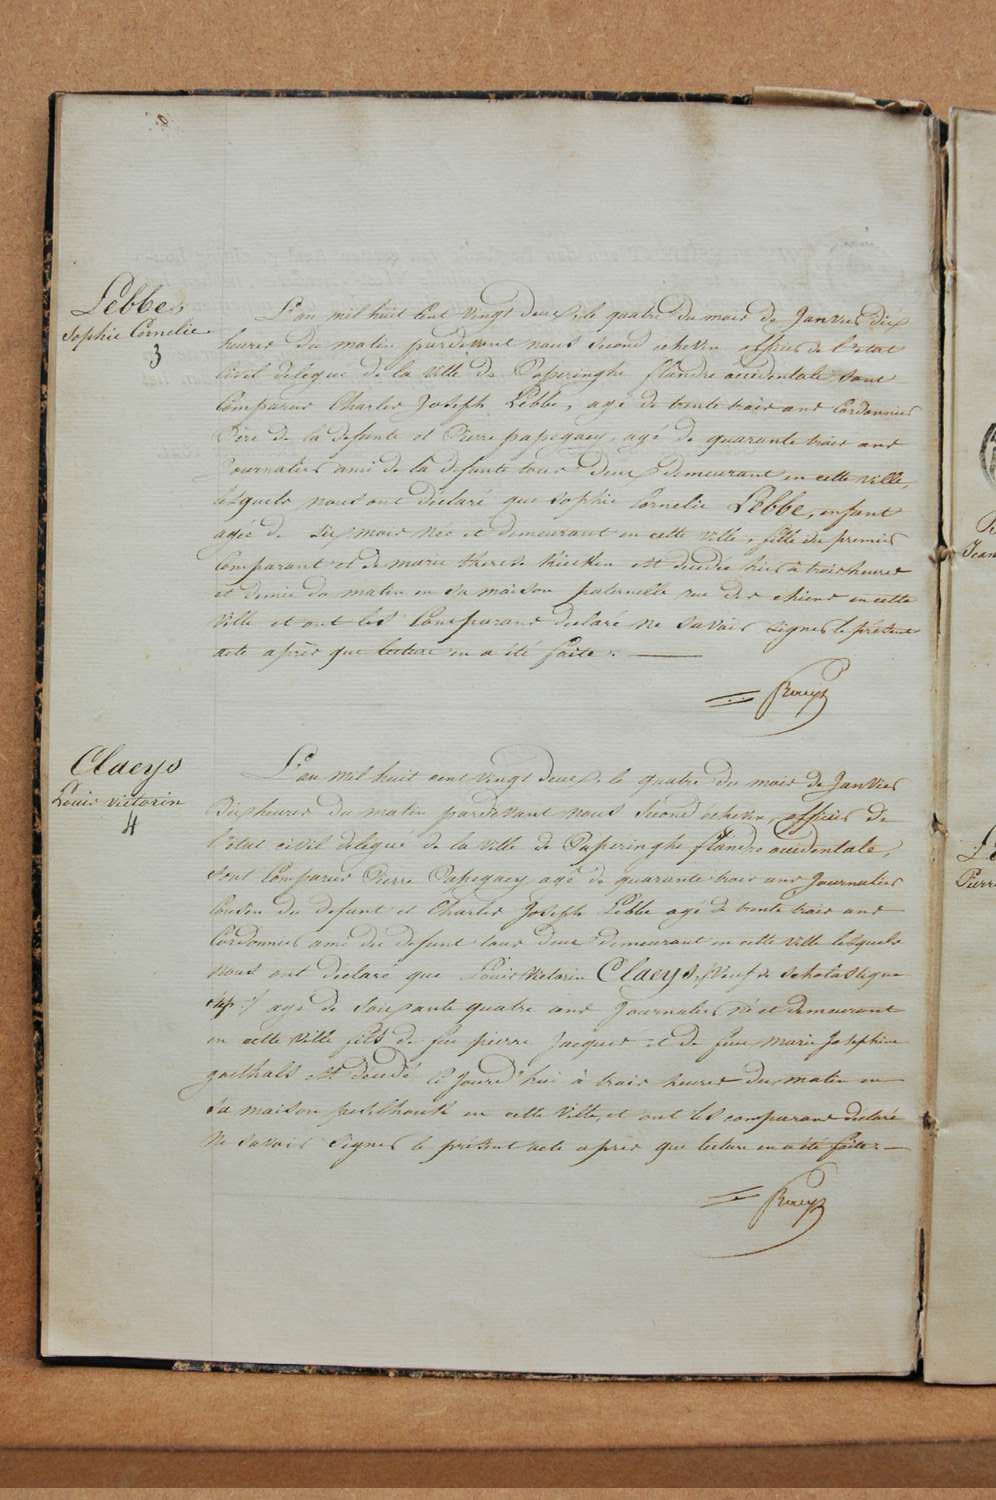 Lebbe,
Sophie Cornelie
3
L'an mil huit Cent vingt deux, le quatre du mois de Janvier dix
heures du matin pardevant nous Second echevin officier de l'etat
Civil delégué de la ville de Poperinghe flandre occidentale, sont
Comparus Charles Joseph Lebbe, agé de trente trois ans Cordonnier
Père de la defunte et Pierre papegaey, agé de quarante trois ans
Journalier ami de la defunte tous deux demeurant en cette ville,
lesquels nous ont déclaré que Sophie Cornelie Lebbe, enfant
agée de Six mois née et demeurant en cette ville, fille du premier
Comparant et de marie therese est décédée hier à trois heures
et demie du matin en Sa maison paternelle rue des chiens en cette
ville et ont les Comparans declaré ne Savoir Signer le présent
acte après que lecture en a été faite.
Claeys
Louis victorin
4
L'an mil huit cent vingt deux, le quatre du mois de Janvier
Dix heures du matin pardevant nous Second échevin, officier de
l'etat civil delégué de la ville de Poperinghe flandre occidentale,
Sont Comparus Pierre Papegaey agé de quarante trois ans Journalier
Cousin du defunt et Charles Joseph Lebbe agé de trente trois ans
Cordonnier ami du defunt tous deux demeurant en cette ville lesquels
nous ont déclaré que Louis Victorin Claeys, veuf de Scholastique
agé de Soixante quatre ans Journalier né et demeurant
en cette ville fils de feu pierre Jacques et de feue Marie Josephine
goethals est décédé ce Jourd'hui à trois heures du matin en
Sa maison en cette ville, et ont les comparans declaré
ne Savoir Signer le présent acte après que lecture en a été faite.